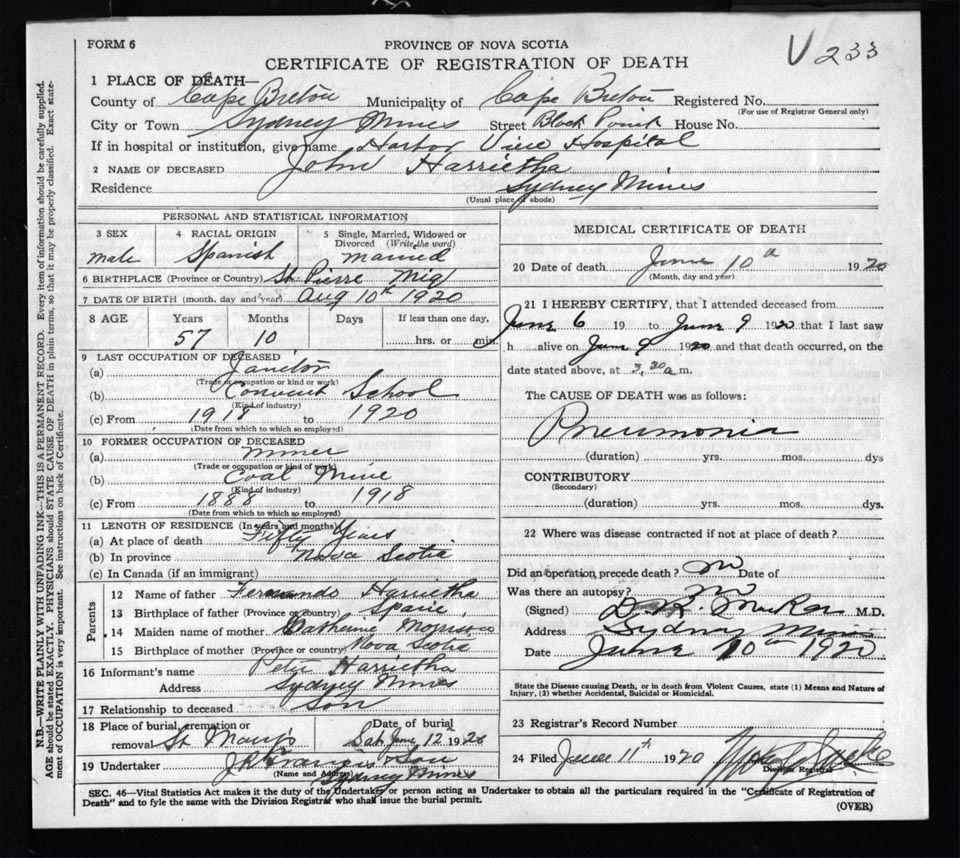 FORM 6
PROVINCE OF NOVA SCOTIA
V 233
CERTIFICATE OF REGISTRATION OF DEATH
1 PLACE OF DEATH—
County of Cape Breton Municipality of Cape Breton Registered No.
(For use of Registrar General only)
City or Town Sydney Mines Street Black Point House No.
If in hospital or institution, give name Harbor View Hospital
2 NAME OF DECEASED John Harrietha
Residence Sydney Mines
(Usual place of abode)
PERSONAL AND STATISTICAL INFORMATION
3 SEX
male
4 RACIAL ORIGIN
Spanish
5 Single, Married, Widowed or Divorced (Write the word)
married
6 BIRTHPLACE (Province or Country) St Pierre Miq
7 DATE OF BIRTH (month, day and year) Aug 10th 1920
8 AGE Years Months Days If less than one day,
57 10 hrs. or min.
9 LAST OCCUPATION OF DECEASED
(a) Janitor
(Trade or occupation or kind or work)
(b) Convent School
(Kind of industry)
(c) From 1918 to 1920
(Date from which to which so employed)
10 FORMER OCCUPATION OF DECEASED
(a) miner
(Trade or occupation or kind of work)
(b) Coal Mine
(Kind of industry)
(c) From 1888 to 1918
(Date from which to which so employed)
11 LENGTH OF RESIDENCE (In years and months)
(a) At place of death Fifty Years
(b) In province Nova Scotia
(c) In Canada (if an immigrant)
Parents
12 Name of father Fernando Harrietha
13 Birthplace of father (Province or country) Spain
14 Maiden name of mother Catherine Morrison
15 Birthplace of mother (Province or country) Nova Scotia
16 Informant's name Peter Harrietha
Address Sydney Mines
17 Relationship to deceased Son
18 Place of burial, cremation or removal St Mary's
Date of burial
Sat June 12th 1920
19 Undertaker J R Francis & Son
(Name and Address)
Sydney Mines
MEDICAL CERTIFICATE OF DEATH
20 Date of death June 10th 1920
(Month, day and year)
21 I HEREBY CERTIFY, that I attended deceased from
June 6 19 to June 9 1920 that I last saw
h alive on June 9 1920 and that death occurred, on the
date stated above, at 3.30 a.m.
The CAUSE OF DEATH was as follows:
Pneumonia
(duration) yrs. mos. dys
CONTRIBUTORY
(Secondary)
(duration) yrs. mos. dys.
22 Where was disease contracted if not at place of death?
Did an operation precede death? no Date of
Was there an autopsy? no
(Signed) M.D.
Address Sydney Mines
Date June 10th 1920
State the Disease causing Death, or in death from Violent Causes, state (1) Means and Nature of
Injury, (2) whether Accidental, Suicidal or Homicidal.
23 Registrar's Record Number
24 Filed June 11th 1920
Division Registrar
SEC. 46—Vital Statistics Act makes it the duty of the Undertaker or person acting as Undertaker to obtain all the particulars required in the "Certificate of Registration of
Death" and to fyle the same with the Division Registrar who shall issue the burial permit.
(OVER)
N.B.—WRITE PLAINLY WITH UNFADING INK—THIS IS A PERMANENT RECORD. Every item of information should be carefully supplied.
AGE should be stated EXACTLY. PHYSICIANS should STATE CAUSE OF DEATH in plain terms, so that it may be properly classified. Exact state-
ment of OCCUPATION is very important. See instructions on back of Certificate.